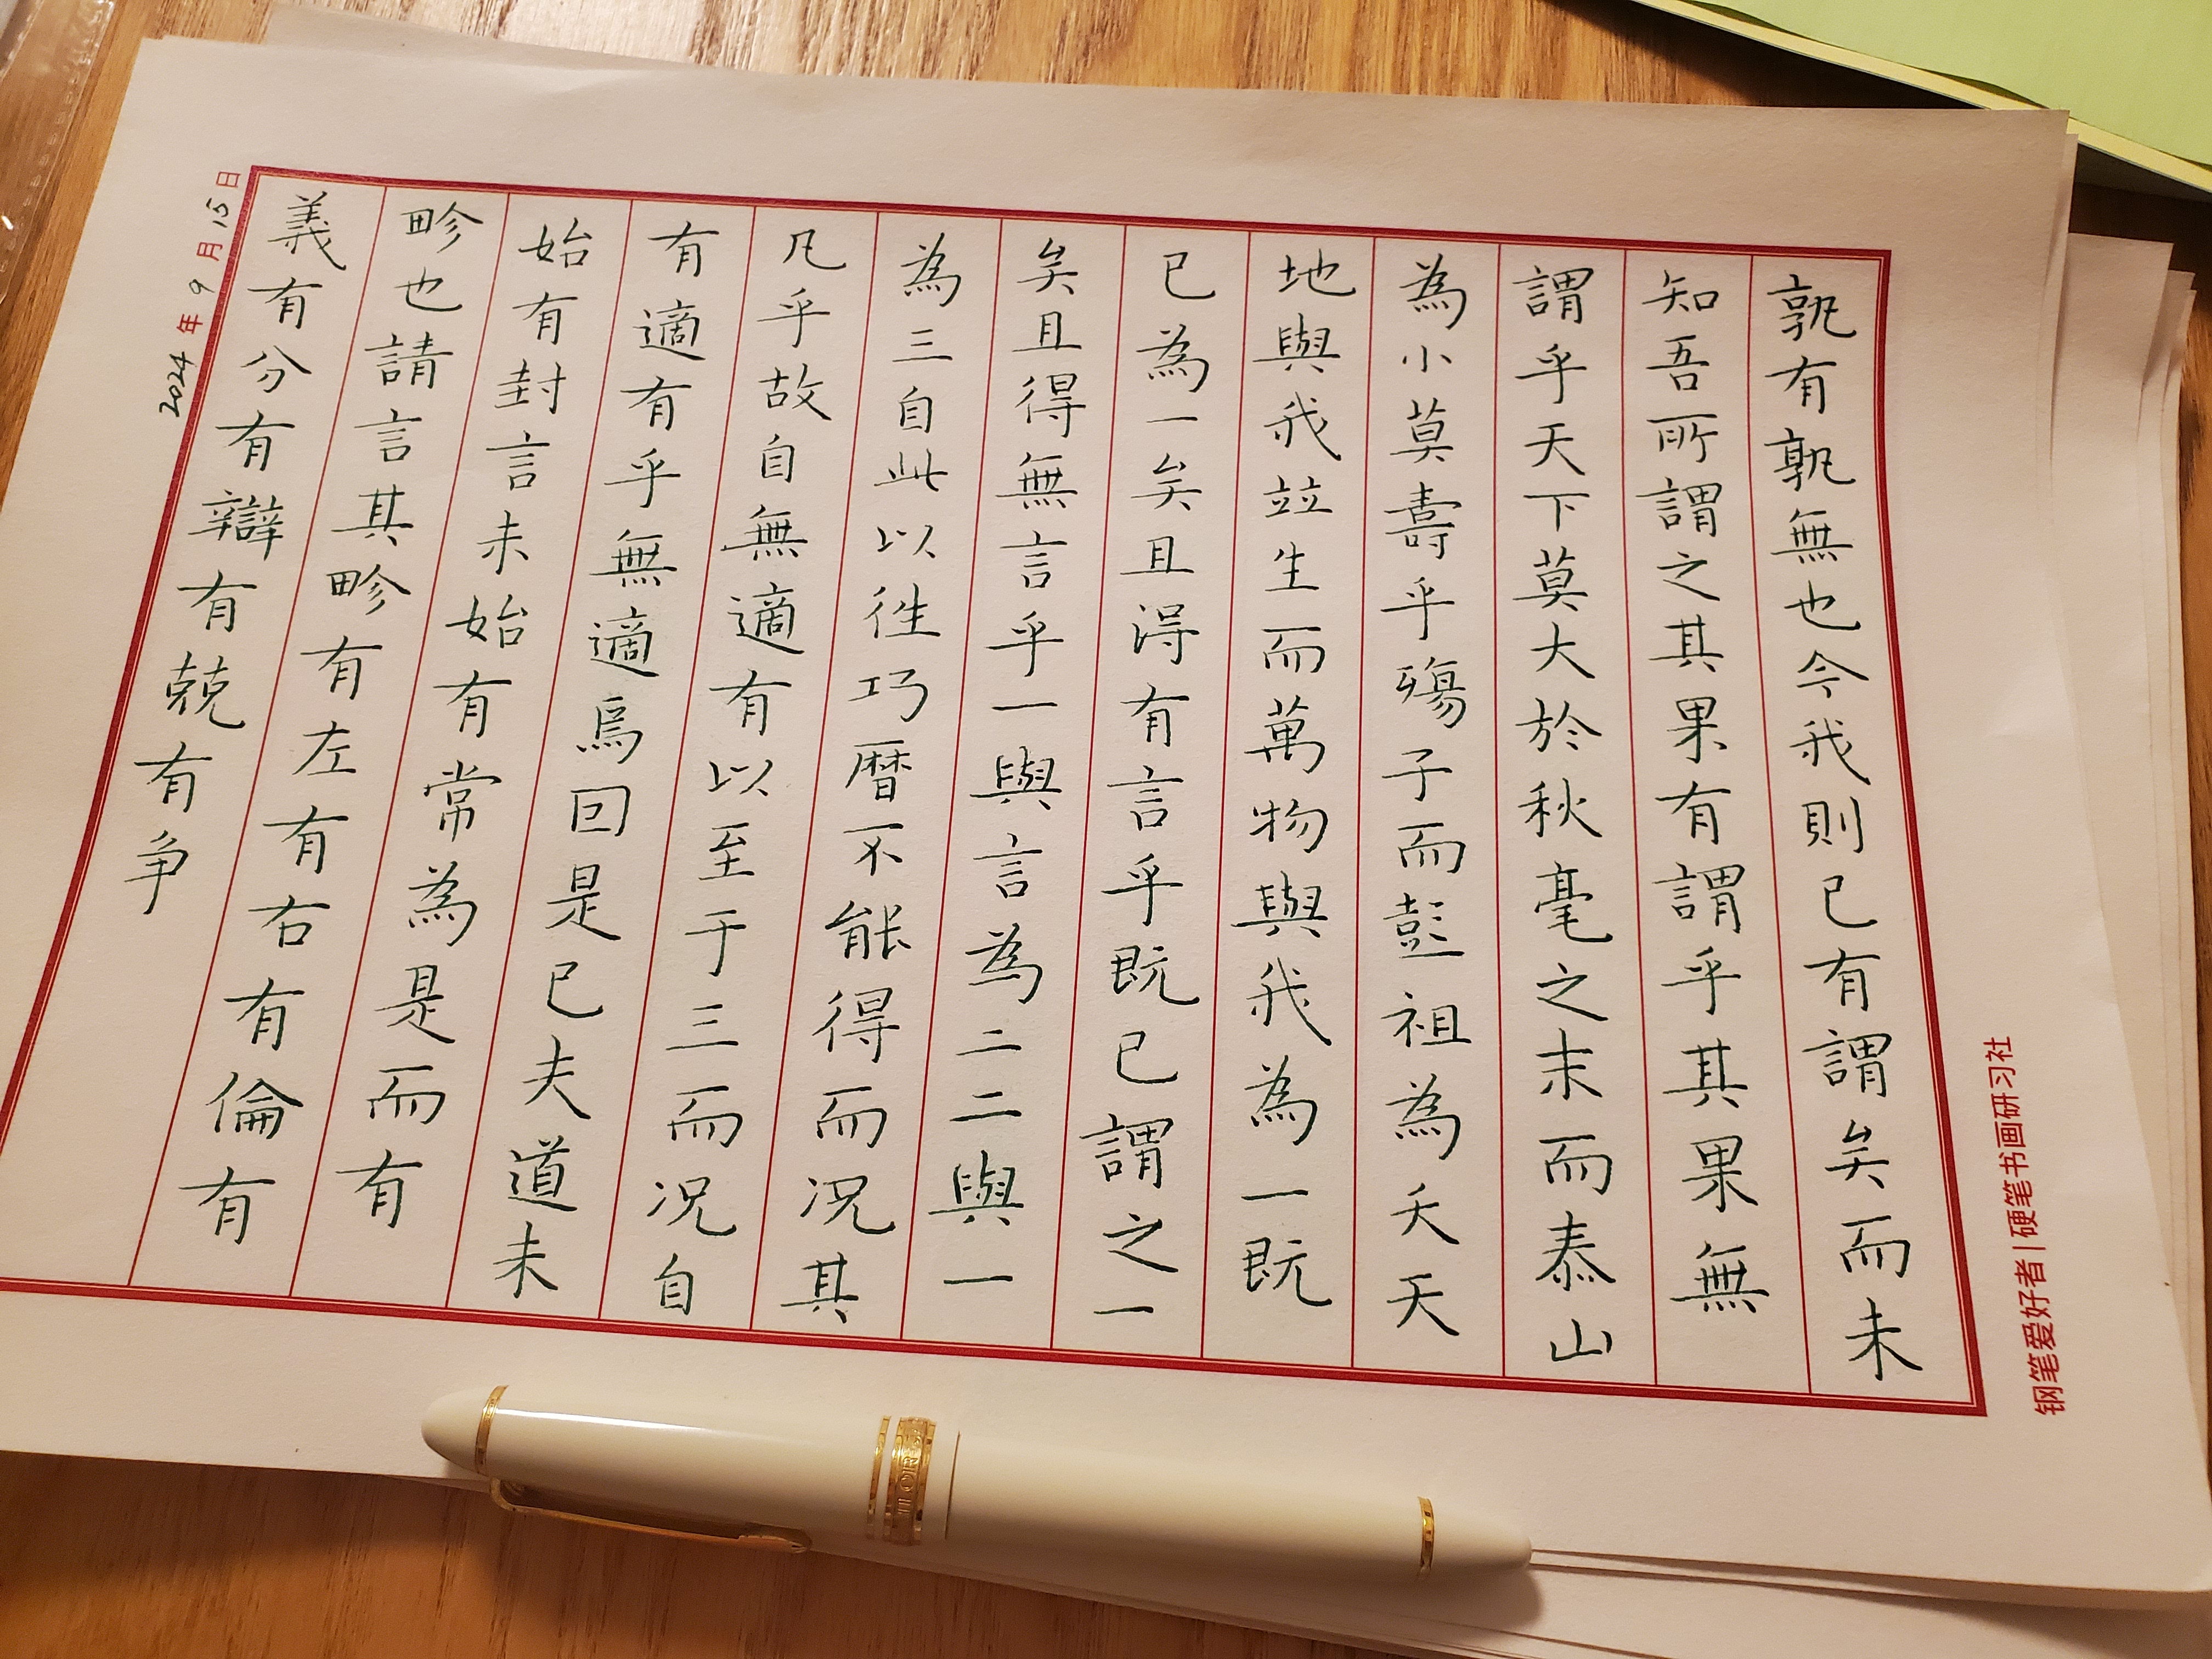 钢笔爱好者|硬笔书画研习社
孰有孰無也今我則已有謂矣而未
知吾所謂之其果有謂乎其果無
謂乎天下莫大於秋毫之末而泰山
為小莫壽乎殤子而彭祖為夭天
地與我竝生而萬物與我為一既
已為一矣且得有言乎既已謂之一
矣且得無言乎一與言為二二與一
為三自此以往巧暦不能得而况其
凡乎故自無適有以至于三而况自
有適有乎無適焉因是已夫道未
始有封言未始有常為是而有
畛也請言其畛有左有右有倫有
義有分有辯有競有争
2024年9月15日